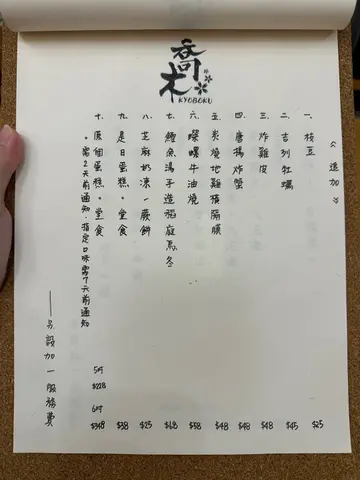 喬木
KYOBOKU
《追加》
一、枝豆 $25
二、吉列牡蠣 $45
三、炸雞皮 $48
四、唐揚炸蟹 $48
五、炭燒地雞橫隔膜 $48
六、蠑螺牛油燒 $58
七、鰹魚湯手造稻庭烏冬 $68
八、芝麻奶凍一蕨餅 $25
九、是日蛋糕。堂食 $38
十、原個蛋糕。堂食 5吋 $228 6吋 $348
。需2天前通知,指定口味需7天前通知
——另設加一服務費